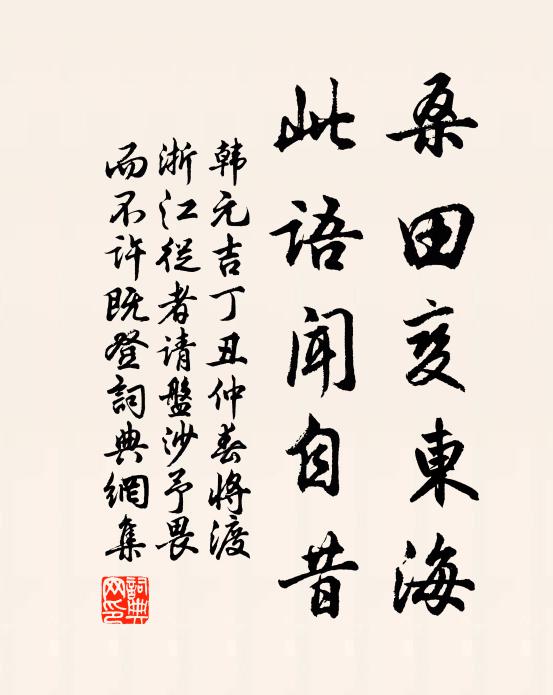 桑田变東海
此语闻自昔
韩元吉丁丑仲春將渡
浙江從者请盤沙予畏
而不许既登詞典網集
詞典網印